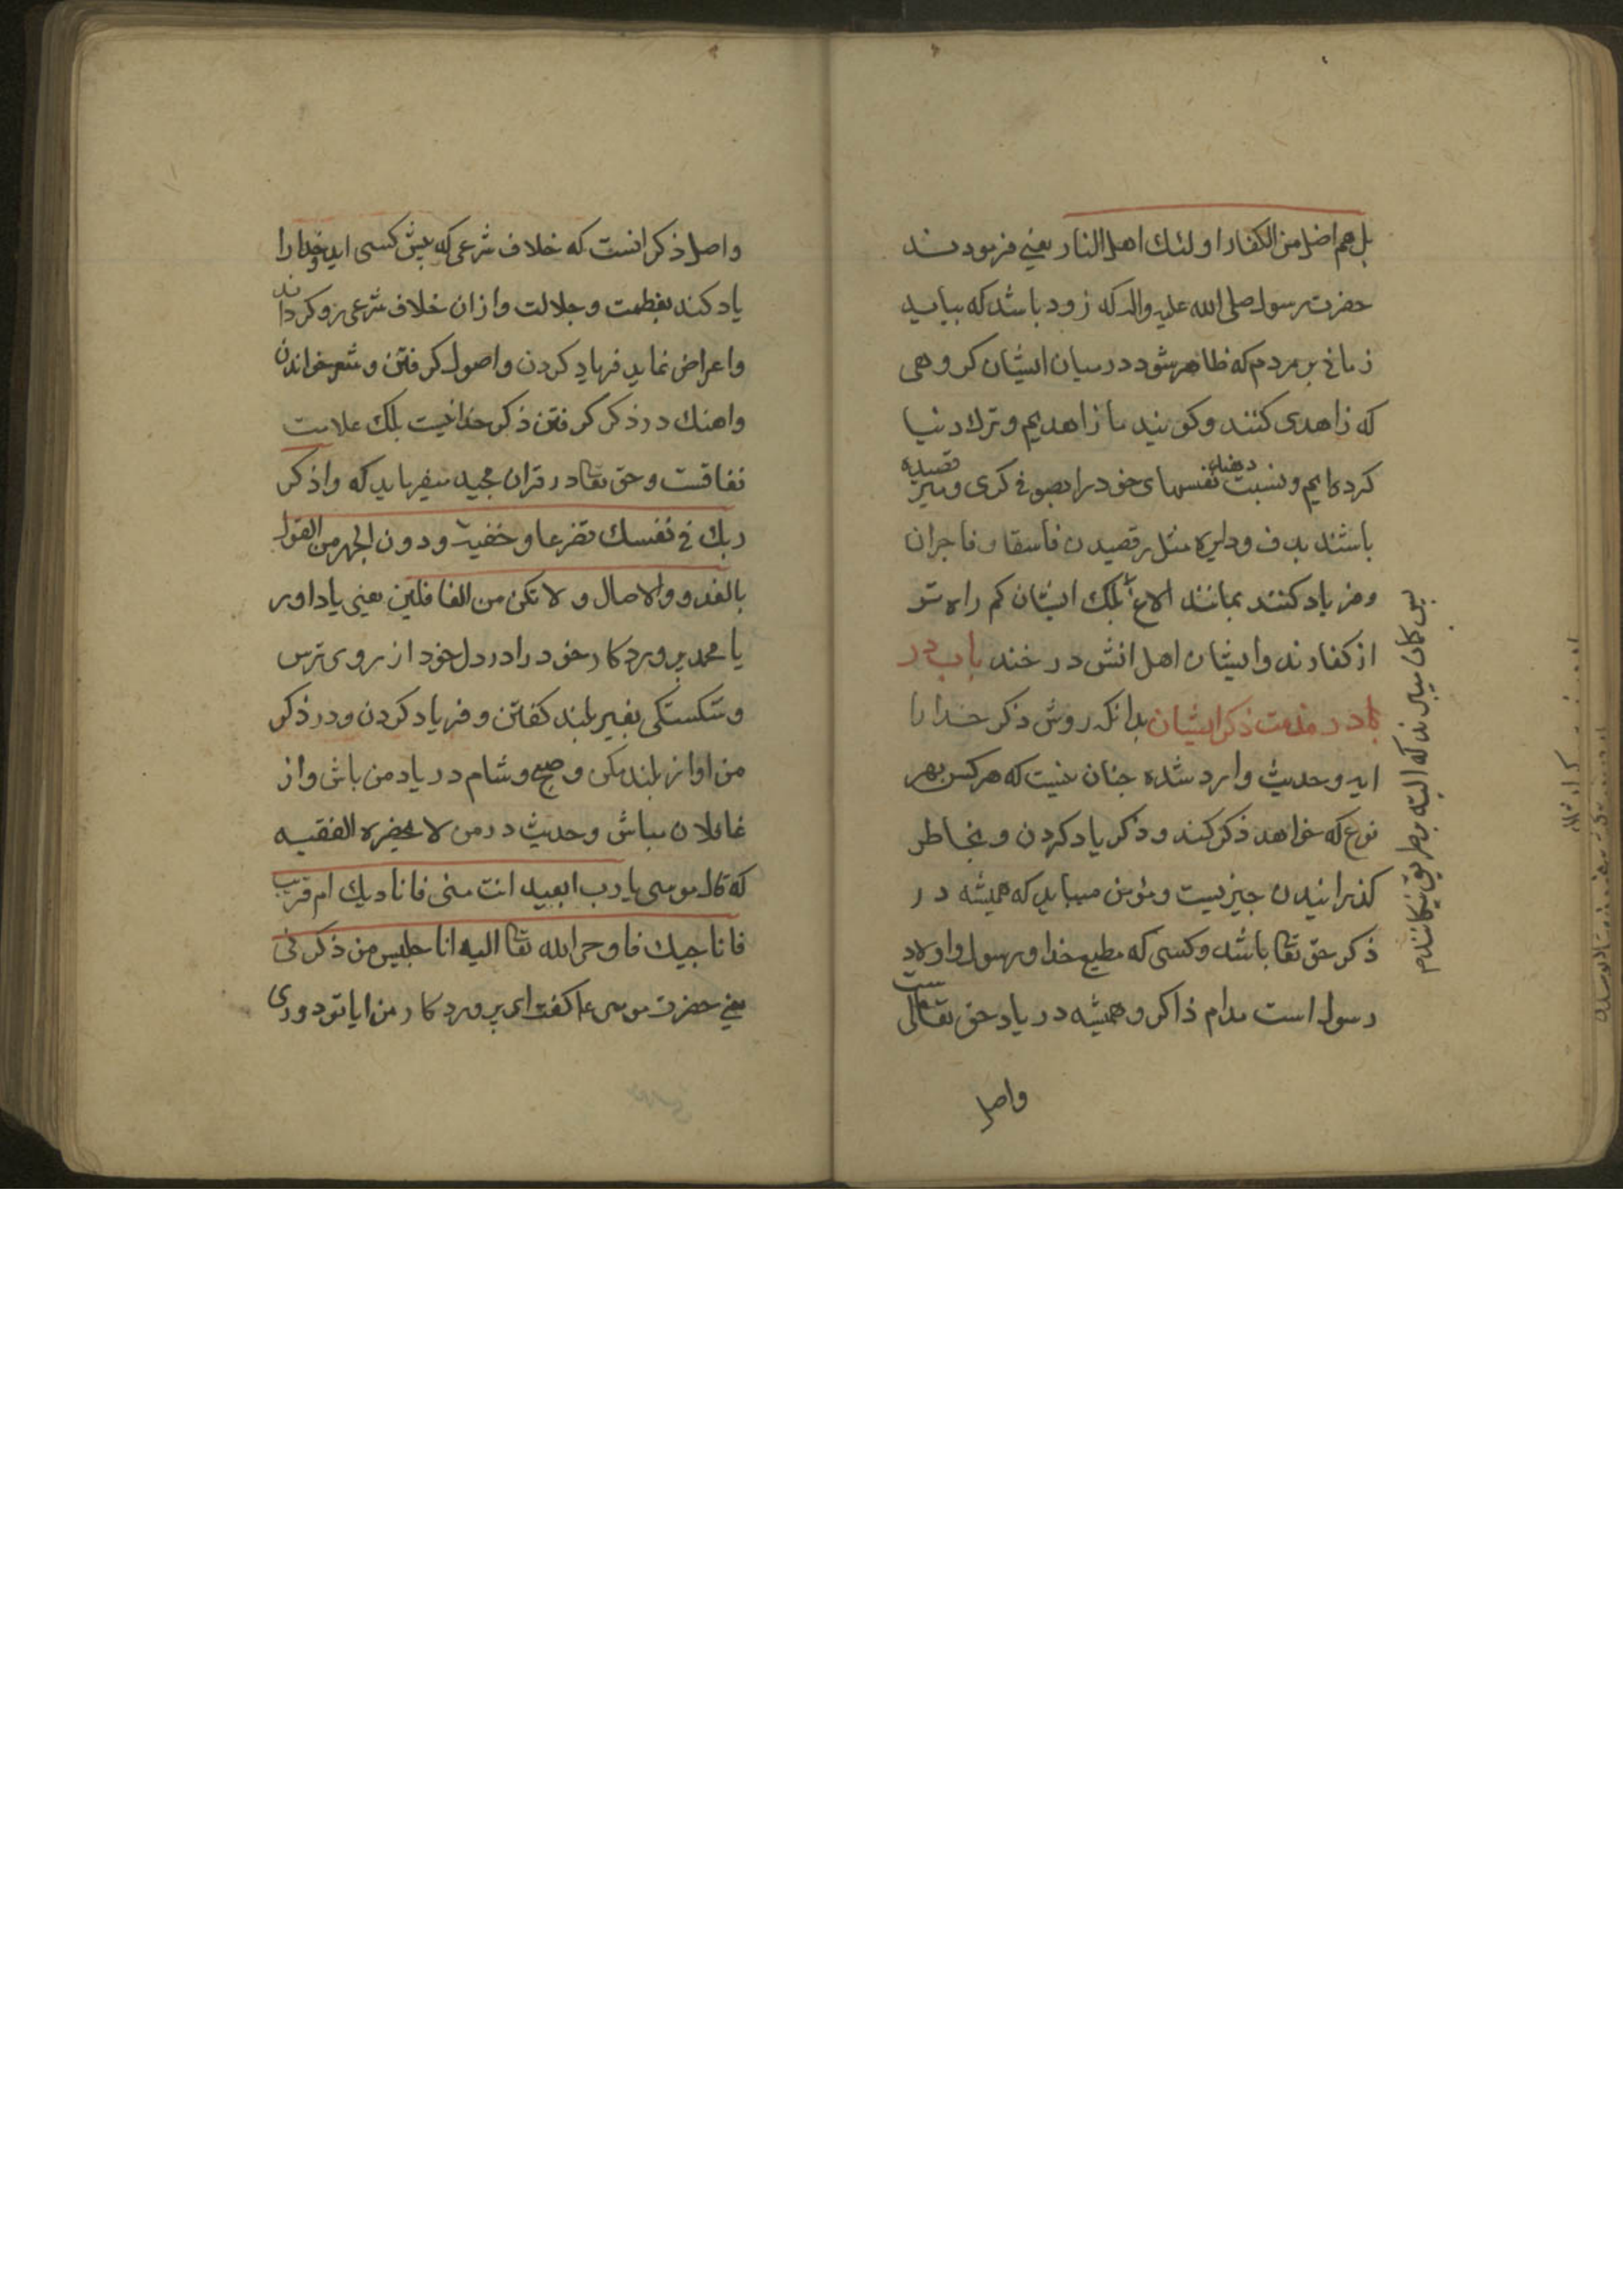 بل هم اضل من الکفار اولئک اهل النار یعنی فرمودند
حضرت رسول صلی الله علیه واله که زود باشد که بیاید
زمانی بر مردم که ظاهر شود در میان ایشان کروهی
که زاهدی کنند و کویند ما زاهدیم و ترک دنیا
کرده‌ایم و نسبت دهند نفسهای خود را بصوفی کری و
باشند بدف و دایره مثل رقصیدن فاسقان و فاجران
و فریاد کنند بمانند الاغ بلکه ایشان کم راه تر
از کفارند و ایشان اهل اتش دوزخند باب در
در مذمت ذکر ایشان بدانکه روش ذکر خدا را
ایه و حدیث وارد شده چنان نیست که هر کس بهر
نوع که خواهد ذکر کند و ذکر یاد کردن و بخاطر
کذرانیدن چیزیست و مؤمن میباید که همیشه در
ذکر حق تعا باشد و کسی که مطیع خدا و رسول و اولاد
رسول است مدام ذاکر و همیشه در یاد حق تعالی
واصل
پس کمان میبرند که البته بر طریق
واصل ذکر انست که خلاف شرعی که پیش کسی اید خدا را
یاد کند بعظمت و جلالت و از ان خلاف شرعی رو کرداند
و اعراض نماید فریاد کردن و اصول کرفتن و شعر خواندن
و اهنک در ذکر کرفتن ذکر خدا نیست بلکه علامت
نفاقست و حق تعا در قران مجید میفرماید که واذکر
ربک فی نفسک تضرعا و خفیة و دون الجهر من القول
بالغدو والاصال و لا تکن من الغافلین یعنی یاد اور
یا محمد پروردکار خود را در دل خود از روی ترس
و شکستکی بغیر بلند کفتن و فریاد کردن و در ذکر
من اواز بلند مکن و صبح و شام در یاد من باش و از
غافلان مباش و حدیث در من لا یحضره الفقیه
که قال موسی یا رب ابعید انت منی فانادیک ام قریب
فاناجیک فاوحی الله تعا الیه انا جلیس من ذکرنی
یعنی حضرت موسی ع کفت ای پروردکار من ایا تو دوری